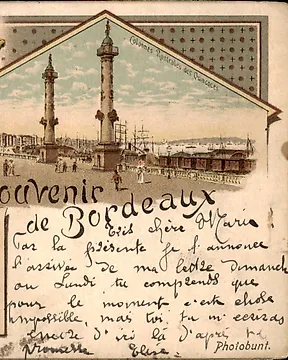 Colonnes Rostrales des Quinconces
Souvenir
de Bordeaux
Très chère Maria
Par la présente je t'annonce
l'arrivée de ma lettre Dimanche
ou Lundi tu comprends que
pour le moment c'est chose
impossible, mais toi, tu m'écriras
d'ici là d'après
Elise
Photobunt.